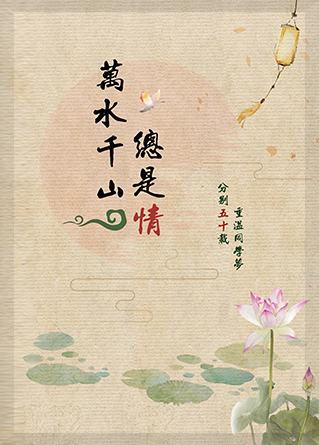 萬水千山
總是情
分别五十載
重溫同學夢